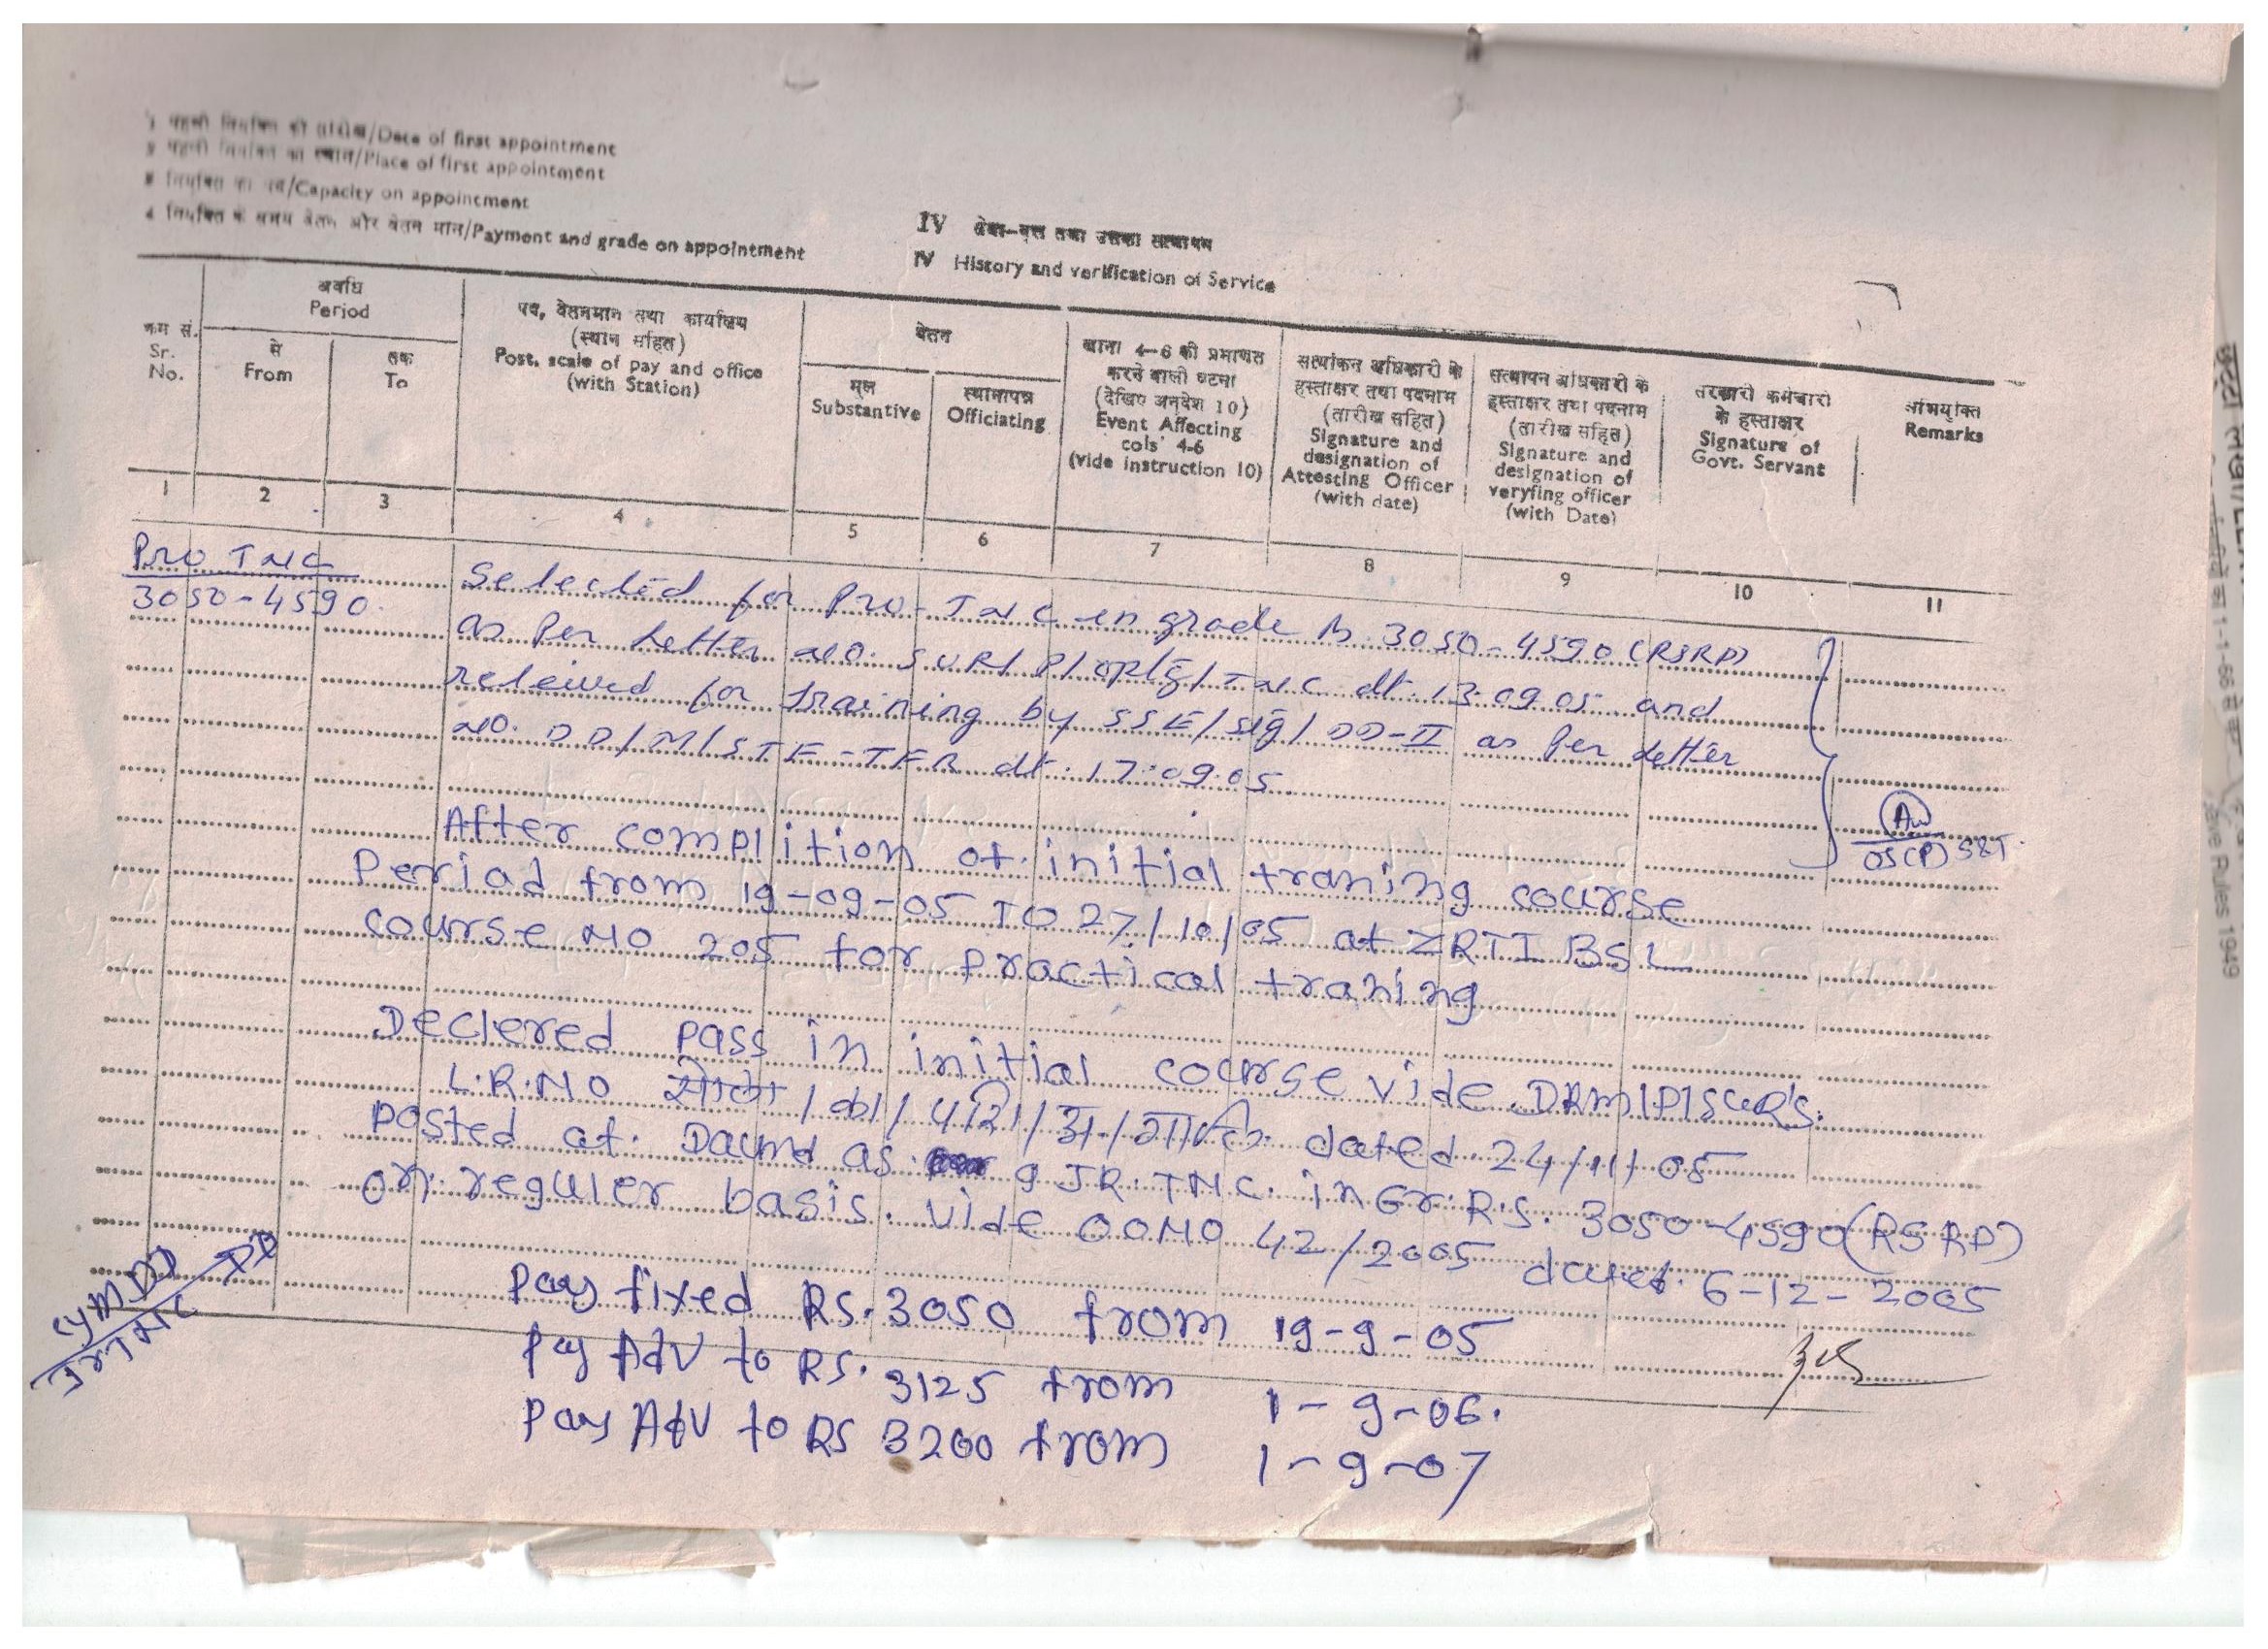 /Date of first appointment
/Place of first appointment
/Capacity on appointment
4 नियुक्ति के समय वेतन और वेतन मान/Payment and grade on appointment
IV सेवा-वृत्त तथा उसका सत्यापन
IV History and verification of Service
क्रम सं.
Sr.
No.
अवधि
Period
से
From
तक
To
पद, वेतनमान तथा कार्यालय
(स्थान सहित)
Post, scale of pay and office
(with Station)
वेतन
मूल
Substantive
स्थानापन्न
Officiating
खाना 4-6 की प्रभावित
करने वाली घटना
(देखिए अनुदेश 10)
Event Affecting
cols' 4-6
(vide instruction 10)
सत्यांकन अधिकारी के
हस्ताक्षर तथा पदनाम
(तारीख सहित)
Signature and
designation of
Attesting Officer
(with date)
सत्यापन अधिकारी के
हस्ताक्षर तथा पदनाम
(तारीख सहित)
Signature and
designation of
veryfing officer
(with Date)
सरकारी कर्मचारी
के हस्ताक्षर
Signature of
Govt. Servant
अभियुक्ति
Remarks
1 2 3 4 5 6 7 8 9 10 11
Pro TNC
3050-4590.
Selected for Pro-TNC in grade Rs. 3050-4590 (RSRP)
as Per Letter no. SUR/P/optg/TNC dt. 13.09.05 and
releived for training by SSE/sig/DD-II as Per Letter
no. DD/M/STE-TFR dt. 17.09.05.
OS(P) S&T.
After complition of initial traning course
Period from 19-09-05 TO 27/10/05 at ZRTI BSL
course NO 205 for practical traning
Declered pass in initial course vide DRM/P/SUR's.
L.R.NO सोला/का/ dated 24/11/05
posted at Daund as JR.TNC. in Gr. R.S. 3050-4590(RSRP)
on reguler basis. vide OONO 42/2005 dated. 6-12-2005
Pay fixed RS. 3050 from 19-9-05
Pay Adv to RS. 3125 from 1-9-06.
Pay Adv to RS 3200 from 1-9-07
CYM DD
JrTNC DD
Rules 1949